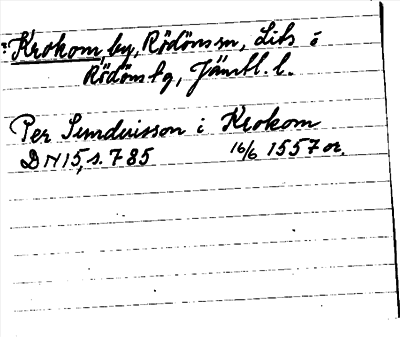 Krokom, by, Rödöns sn, Lits o
Rödöns tg, Jämtl. l.
Per Simduisson i Krokom
DN 15, s. 785 16/6 1557 or.